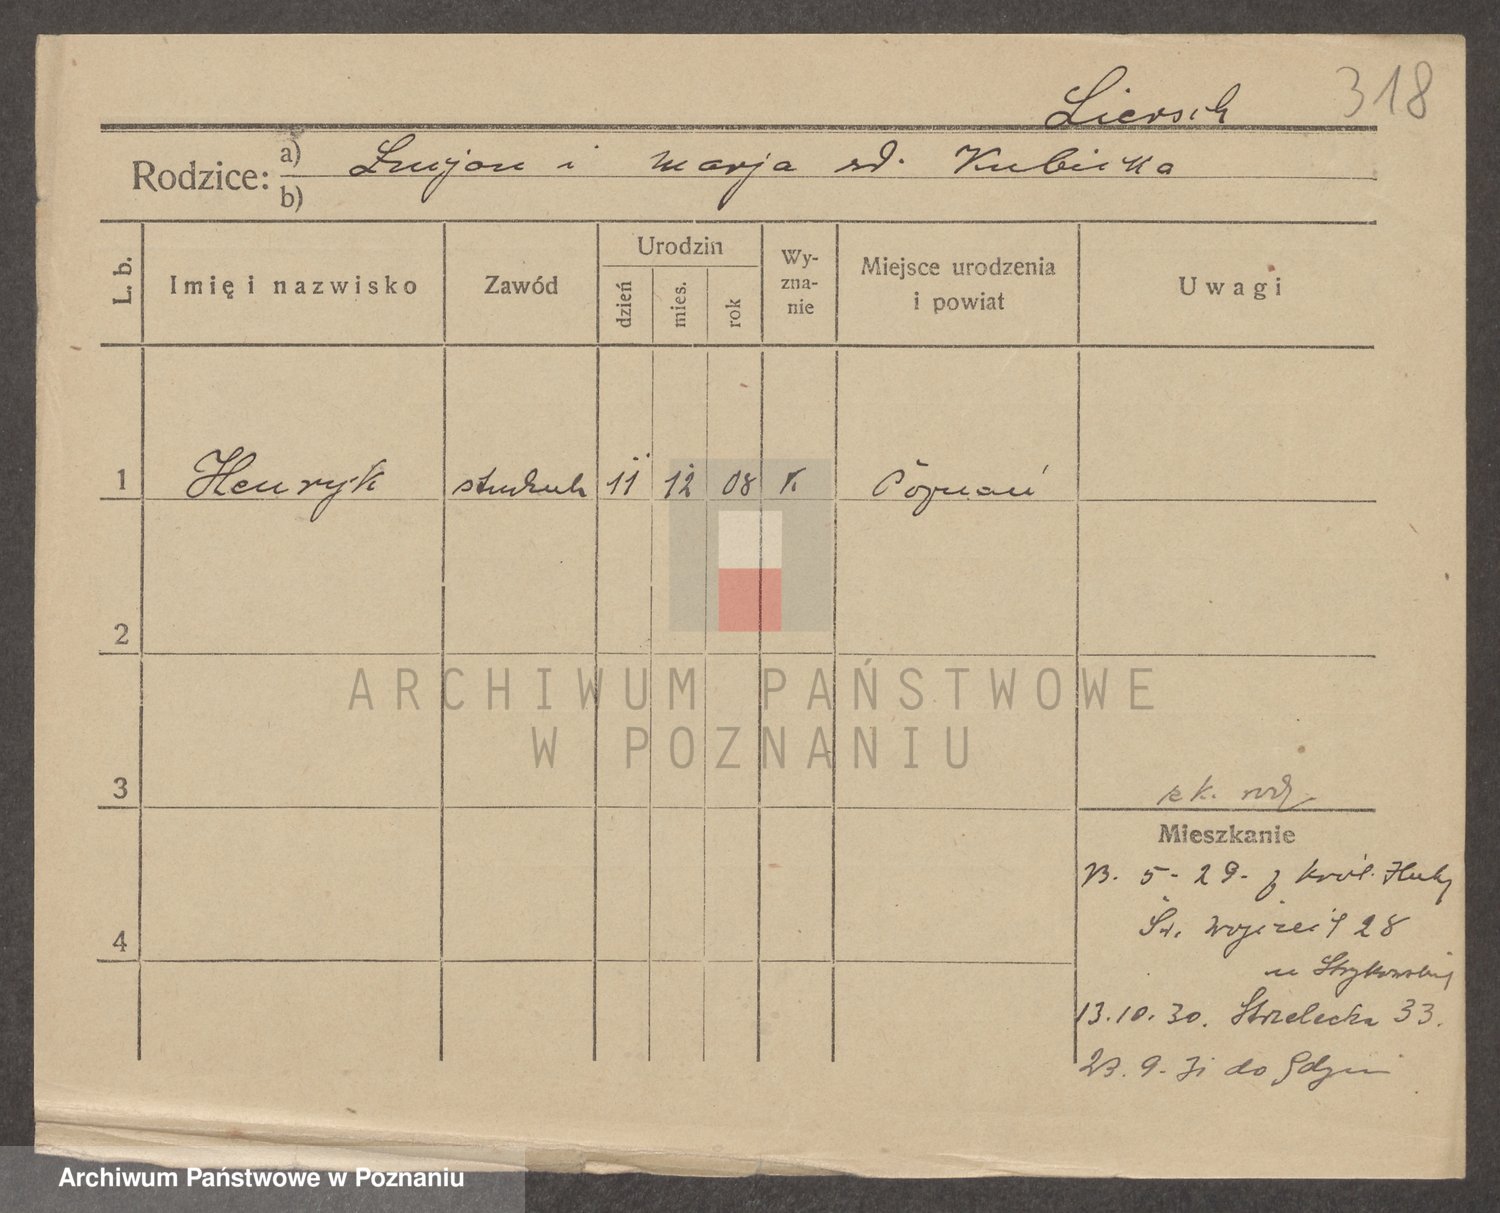 318
Liersch
Rodzice: a) Lucjan i Marja zd. Kubicka
b)
L. b. Imię i nazwisko Zawód Urodzin dzień mies. rok Wy-zna-nie Miejsce urodzenia i powiat Uwagi
1 Henryk student 11 12 08 k. Poznań
2
3
zk. rodz
4
Mieszkanie
23. 5 - 29 - z Król. Huty
Św. Wojciech 28
u Strykowskiej
13. 10. 30. Strzelecka 33.
23. 9. 31 do Gdyni
ARCHIWUM PAŃSTWOWE
W POZNANIU
Archiwum Państwowe w Poznaniu